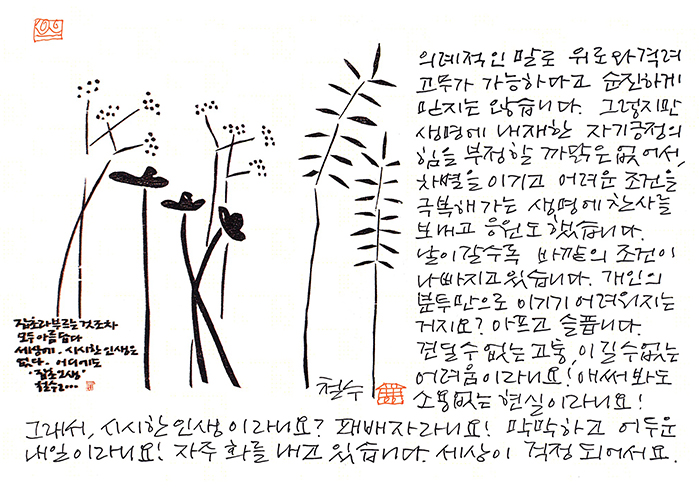 의례적인 말로 위로와 격려
고무가 가능하다고 순진하게
믿지는 않습니다. 그렇지만
생명에 내재한 자기긍정의
힘을 부정할 까닭은 없어서,
차별을 이기고 어려운 조건을
극복해가는 생명에 찬사를
보내고 응원도 했습니다.
날이 갈수록 바깥의 조건이
나빠지고 있습니다. 개인의
분투만으로 이기기 어려워지는
거지요? 아프고 슬픕니다.
견딜 수 없는 고통, 이길 수 없는
어려움이라니요! 애써 봐도
소용없는 현실이라니요!
그래서, 시시한 인생이라니요? 패배자라니요! 막막하고 어두운
내일이라니요! 자주 화를 내고 있습니다. 세상이 걱정되어서요.
잡초라 부르는 것조차
모두 아름답다
세상에, 시시한 인생은
없다. 어디에도
'잡초인생'
철수